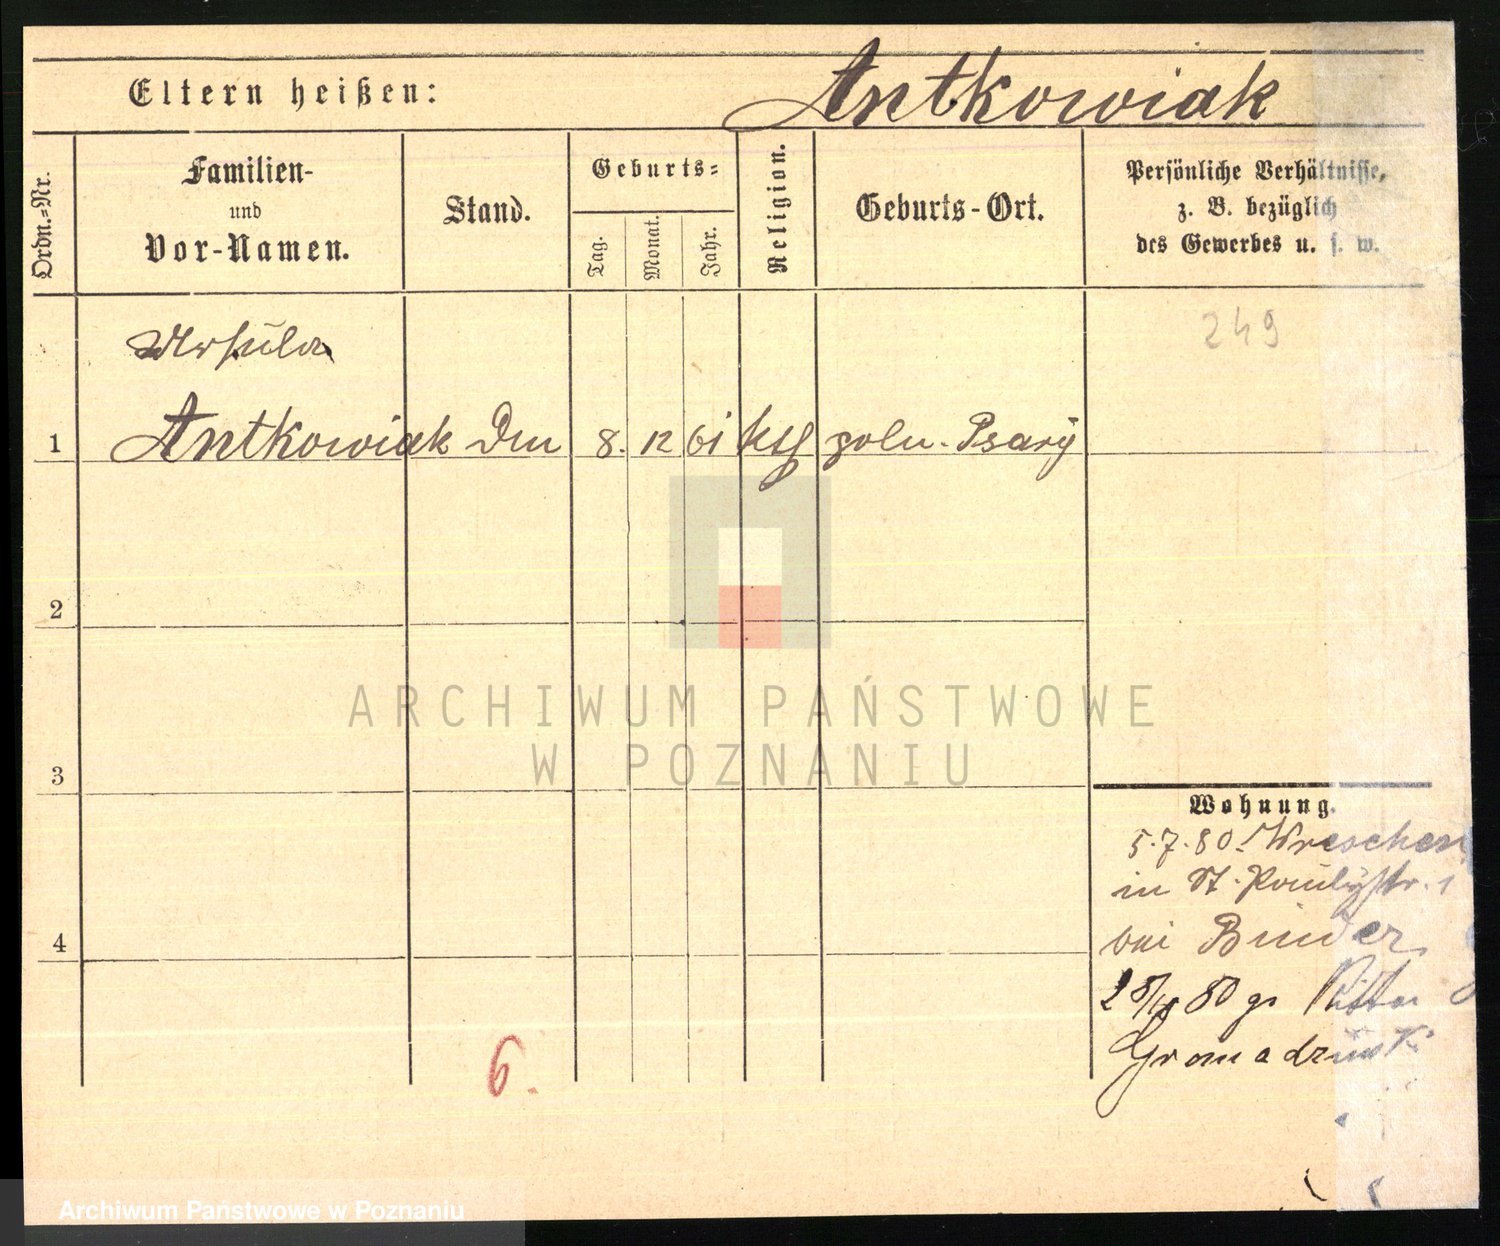 Eltern heißen: Antkowiak
Ordn.=Nr.
Familien-
und
Vor-Namen.
Stand.
Geburts=
Tag.
Monat.
Jahr.
Religion.
Geburts-Ort.
Persönliche Verhältnisse,
z. B. bezüglich
des Gewerbes u. s. w.
249
Ursula
1 Antkowiak 8. 12 61 poln. Psary
2
3
4
ARCHIWUM PAŃSTWOWE
W POZNANIU
Wohnung.
5.7.80. Wreschen
in St. Paulystr. 1
bei Binder
80
6.
Archiwum Państwowe w Poznaniu